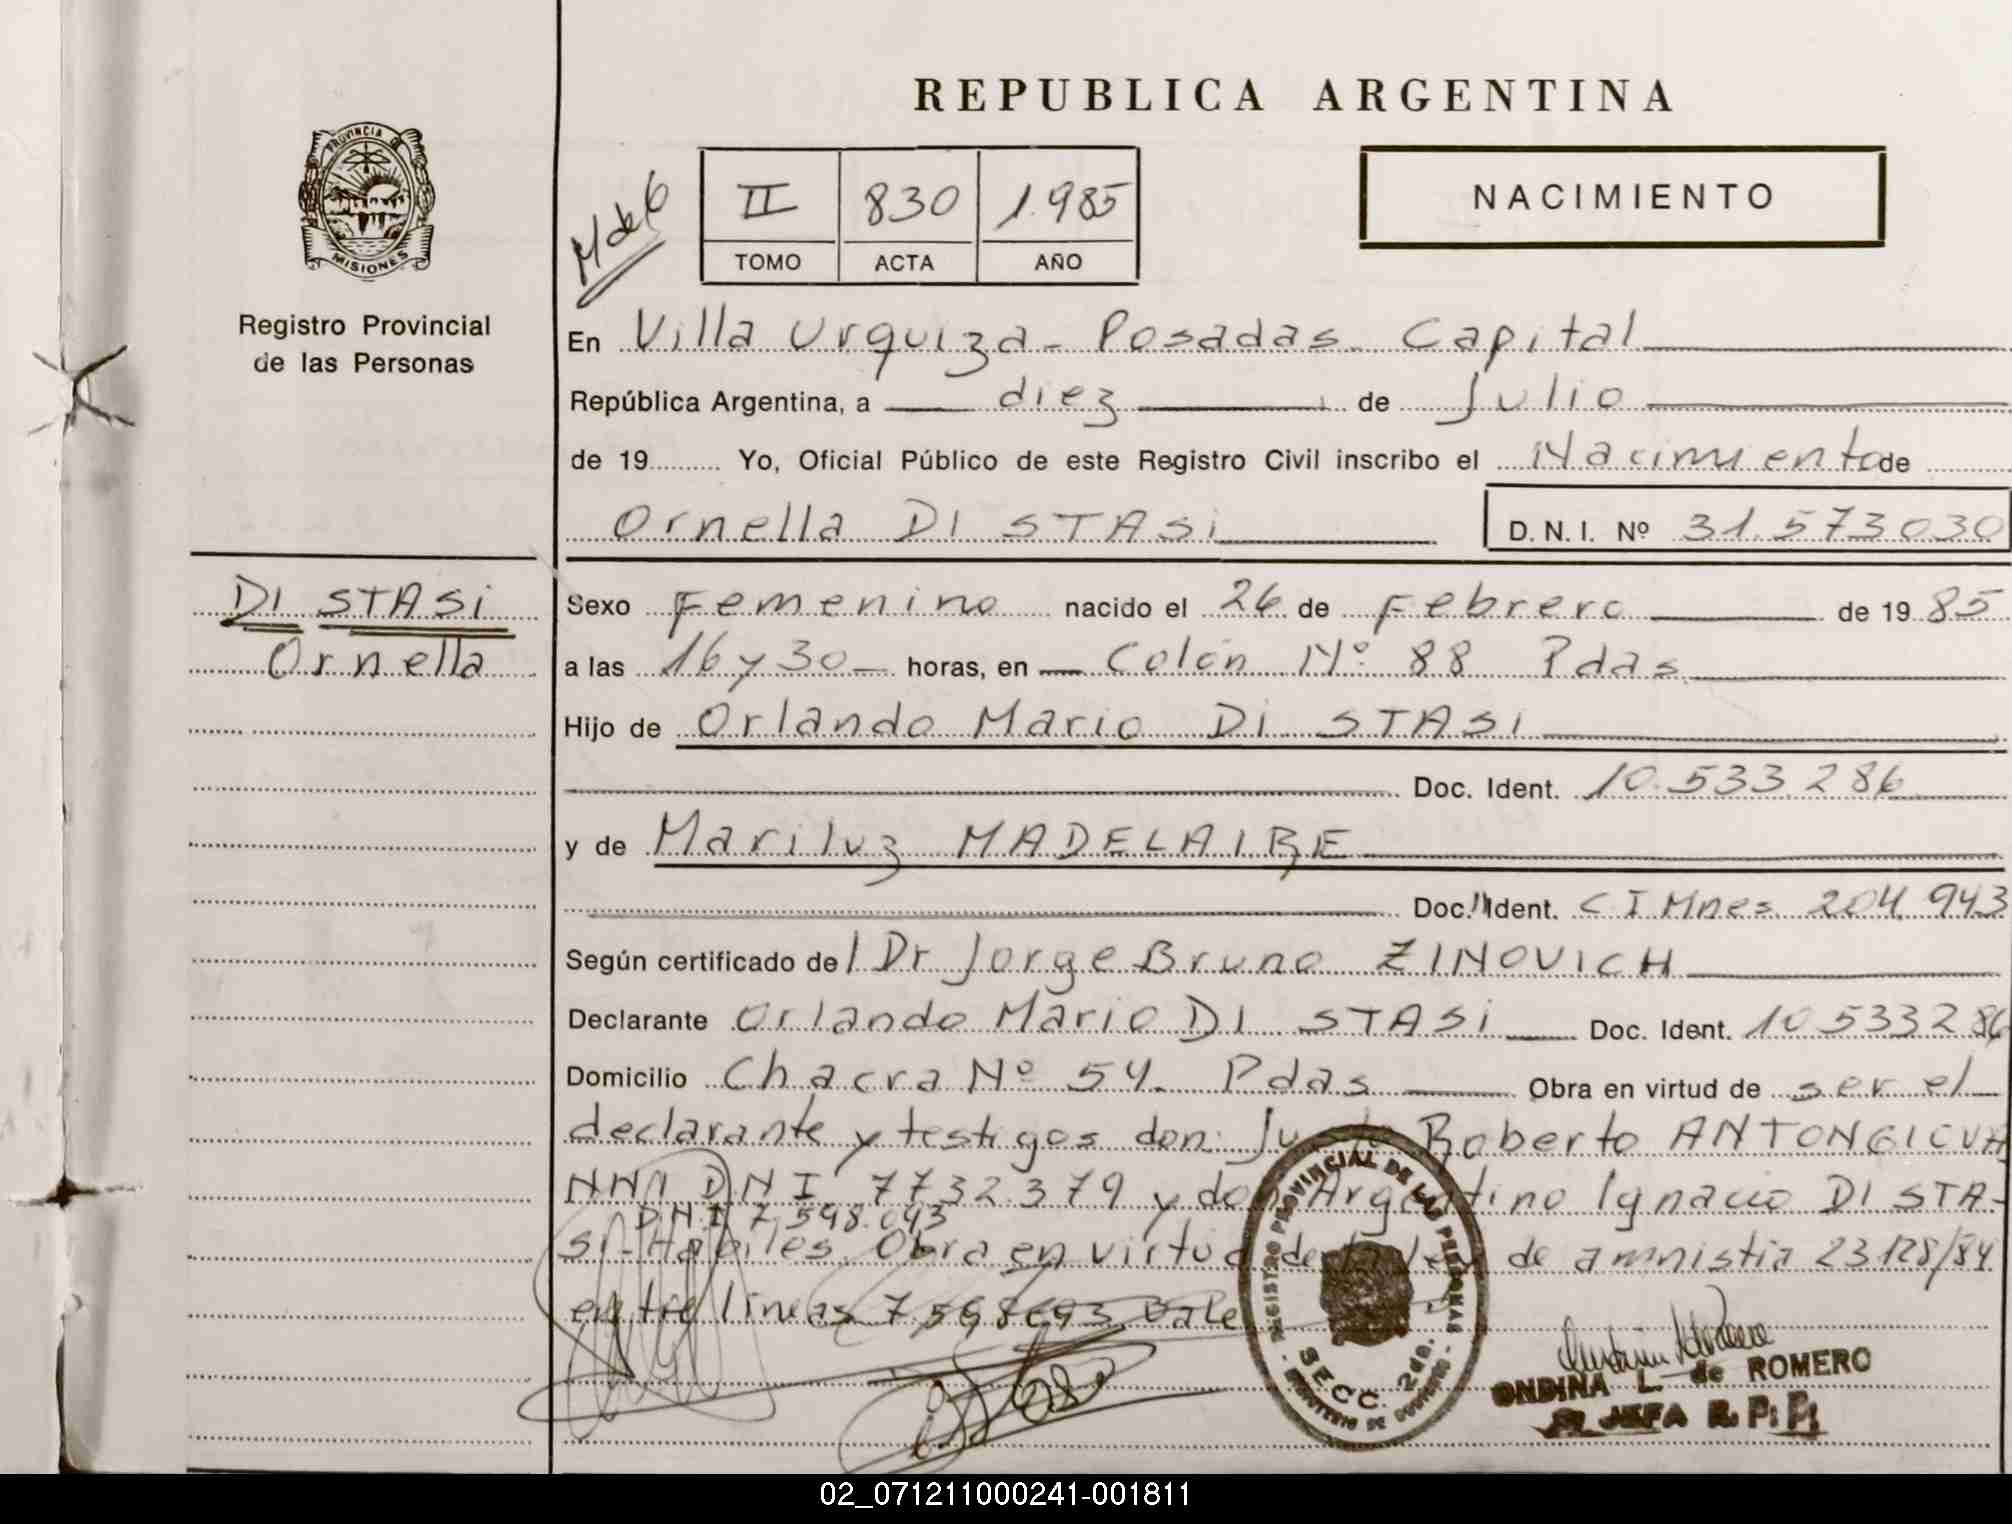 REPUBLICA ARGENTINA
PROVINCIA DE
MISIONES
Registro Provincial
de las Personas
M de 6
II 830 1.985
TOMO ACTA AÑO
NACIMIENTO
En Villa Urquiza - Posadas - Capital
República Argentina, a diez de Julio
de 19 Yo, Oficial Público de este Registro Civil inscribo el Nacimiento de
Ornella DI STASi
D. N. I. Nº 31.573030
DI STASi
Ornella
Sexo Femenino nacido el 26 de Febrero de 19 85
a las 16 y 30 horas, en Colón Nº 88 Pdas
Hijo de Orlando Mario Di STASI
Doc. Ident. 10.533.286
y de Mariluz MADELAIRE
Doc. Ident. C I Mnes 204.943
Según certificado de l Dr Jorge Bruno ZINOVICH
Declarante Orlando Mario DI STASi Doc. Ident. 10 533 286
Domicilio Chacra Nº 54. Pdas Obra en virtud de ser el
declarante y testigos don: Justo Roberto
DNI 7732.379 y don Argentino Ignacio DI STA-
DNI 7.598.093
Si - Habiles. Obra en virtud de la ley de amnistia 23128/84
entre lineas 7598093 Vale
REGISTRO PROVINCIAL DE LAS PERSONAS
SECC. 2da.
MINISTERIO DE GOBIERNO
ONDINA L. de ROMERO
JEFA R. P. P.
02_071211000241-001811